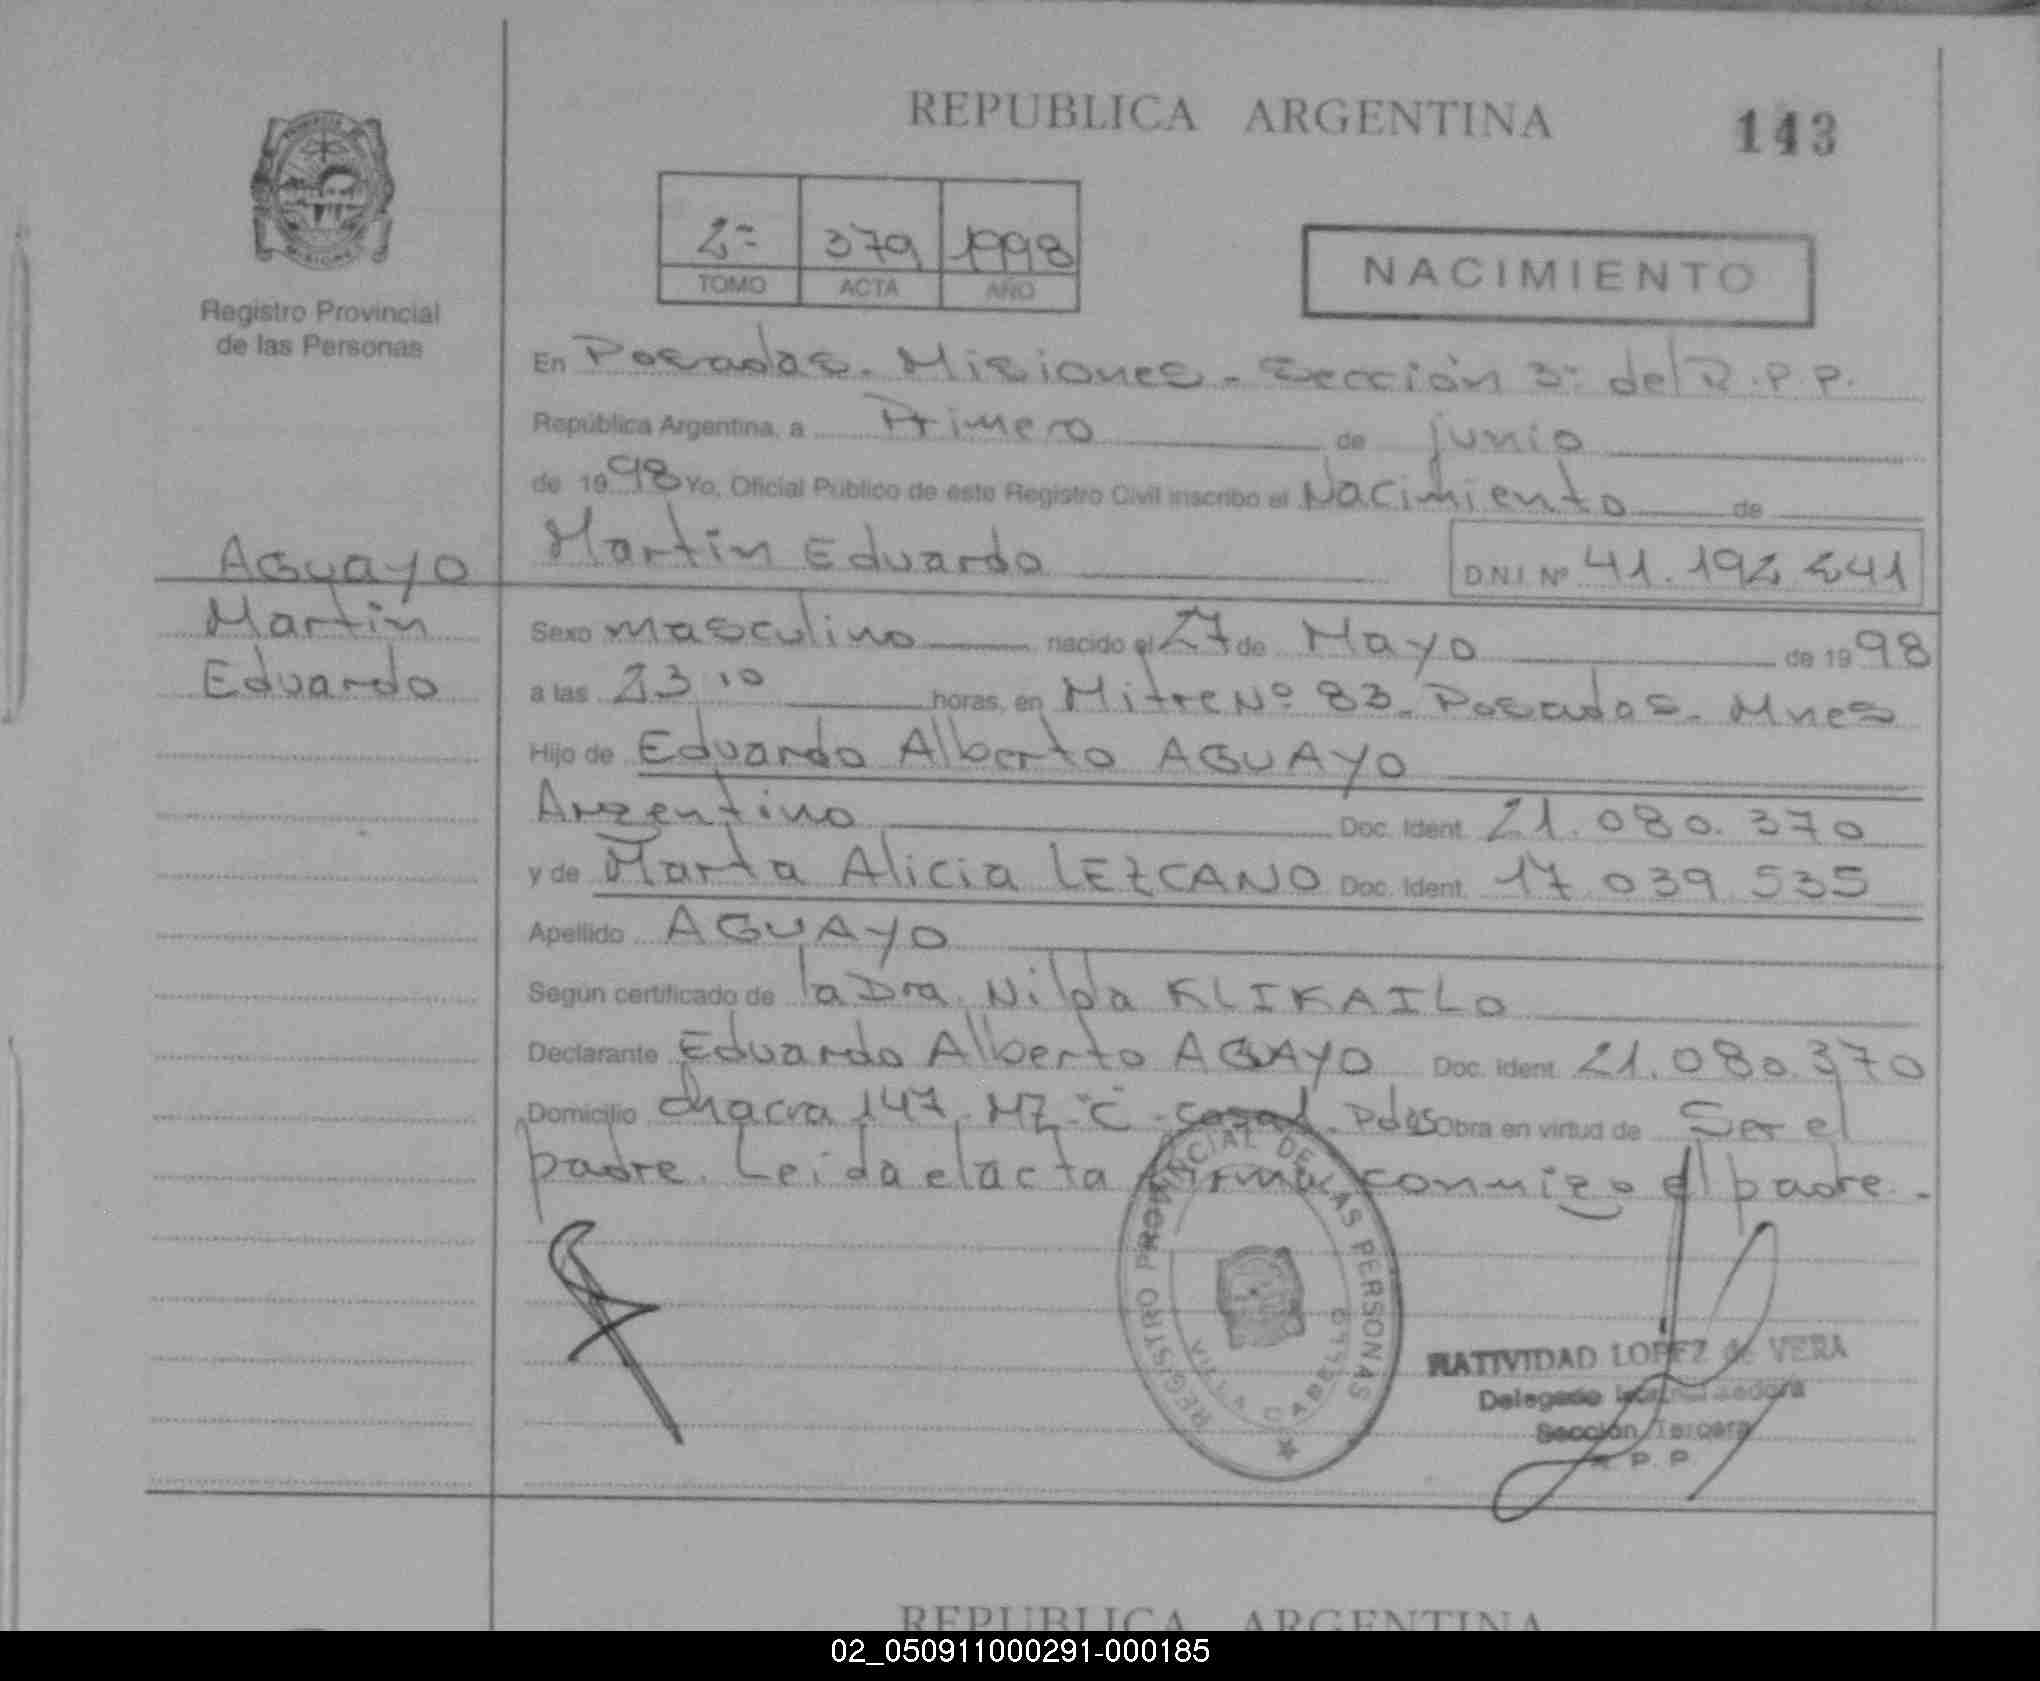 REPUBLICA ARGENTINA
143
2º 379 1998
TOMO ACTA AÑO
NACIMIENTO
Registro Provincial
de las Personas
En Posadas. Misiones - Sección 3º del R.P.P.
República Argentina, a Primero de junio
de 1998 Yo, Oficial Público de este Registro Civil inscribo el Nacimiento de
Martin Eduardo
D.N.I. Nº 41.192.241
Aguayo
Martin
Eduardo
Sexo masculino nacido el 27 de Mayo de 1998
a las 23 10 horas, en Mitre Nº 83. Posadas. Mnes
Hijo de Eduardo Alberto AGUAYO
Argentino Doc. Ident. 21.080.370
y de Marta Alicia LEZCANO Doc. Ident. 17.039.535
Apellido AGUAYO
Según certificado de la Dra. Nilda KLIKAILO
Declarante Eduardo Alberto AGAYO Doc. Ident. 21.080.370
Domicilio chacra 147. MZ "C" - casa1. Pdas Obra en virtud de Ser el
padre. Leida el acta firma conmigo el padre.
REGISTRO PROVINCIAL DE LAS PERSONAS
VILLA CABELLO
NATIVIDAD LOPEZ de VERA
Delegado
Sección Tercera
R. P. P.
REPUBLICA ARGENTINA
02_050911000291-000185